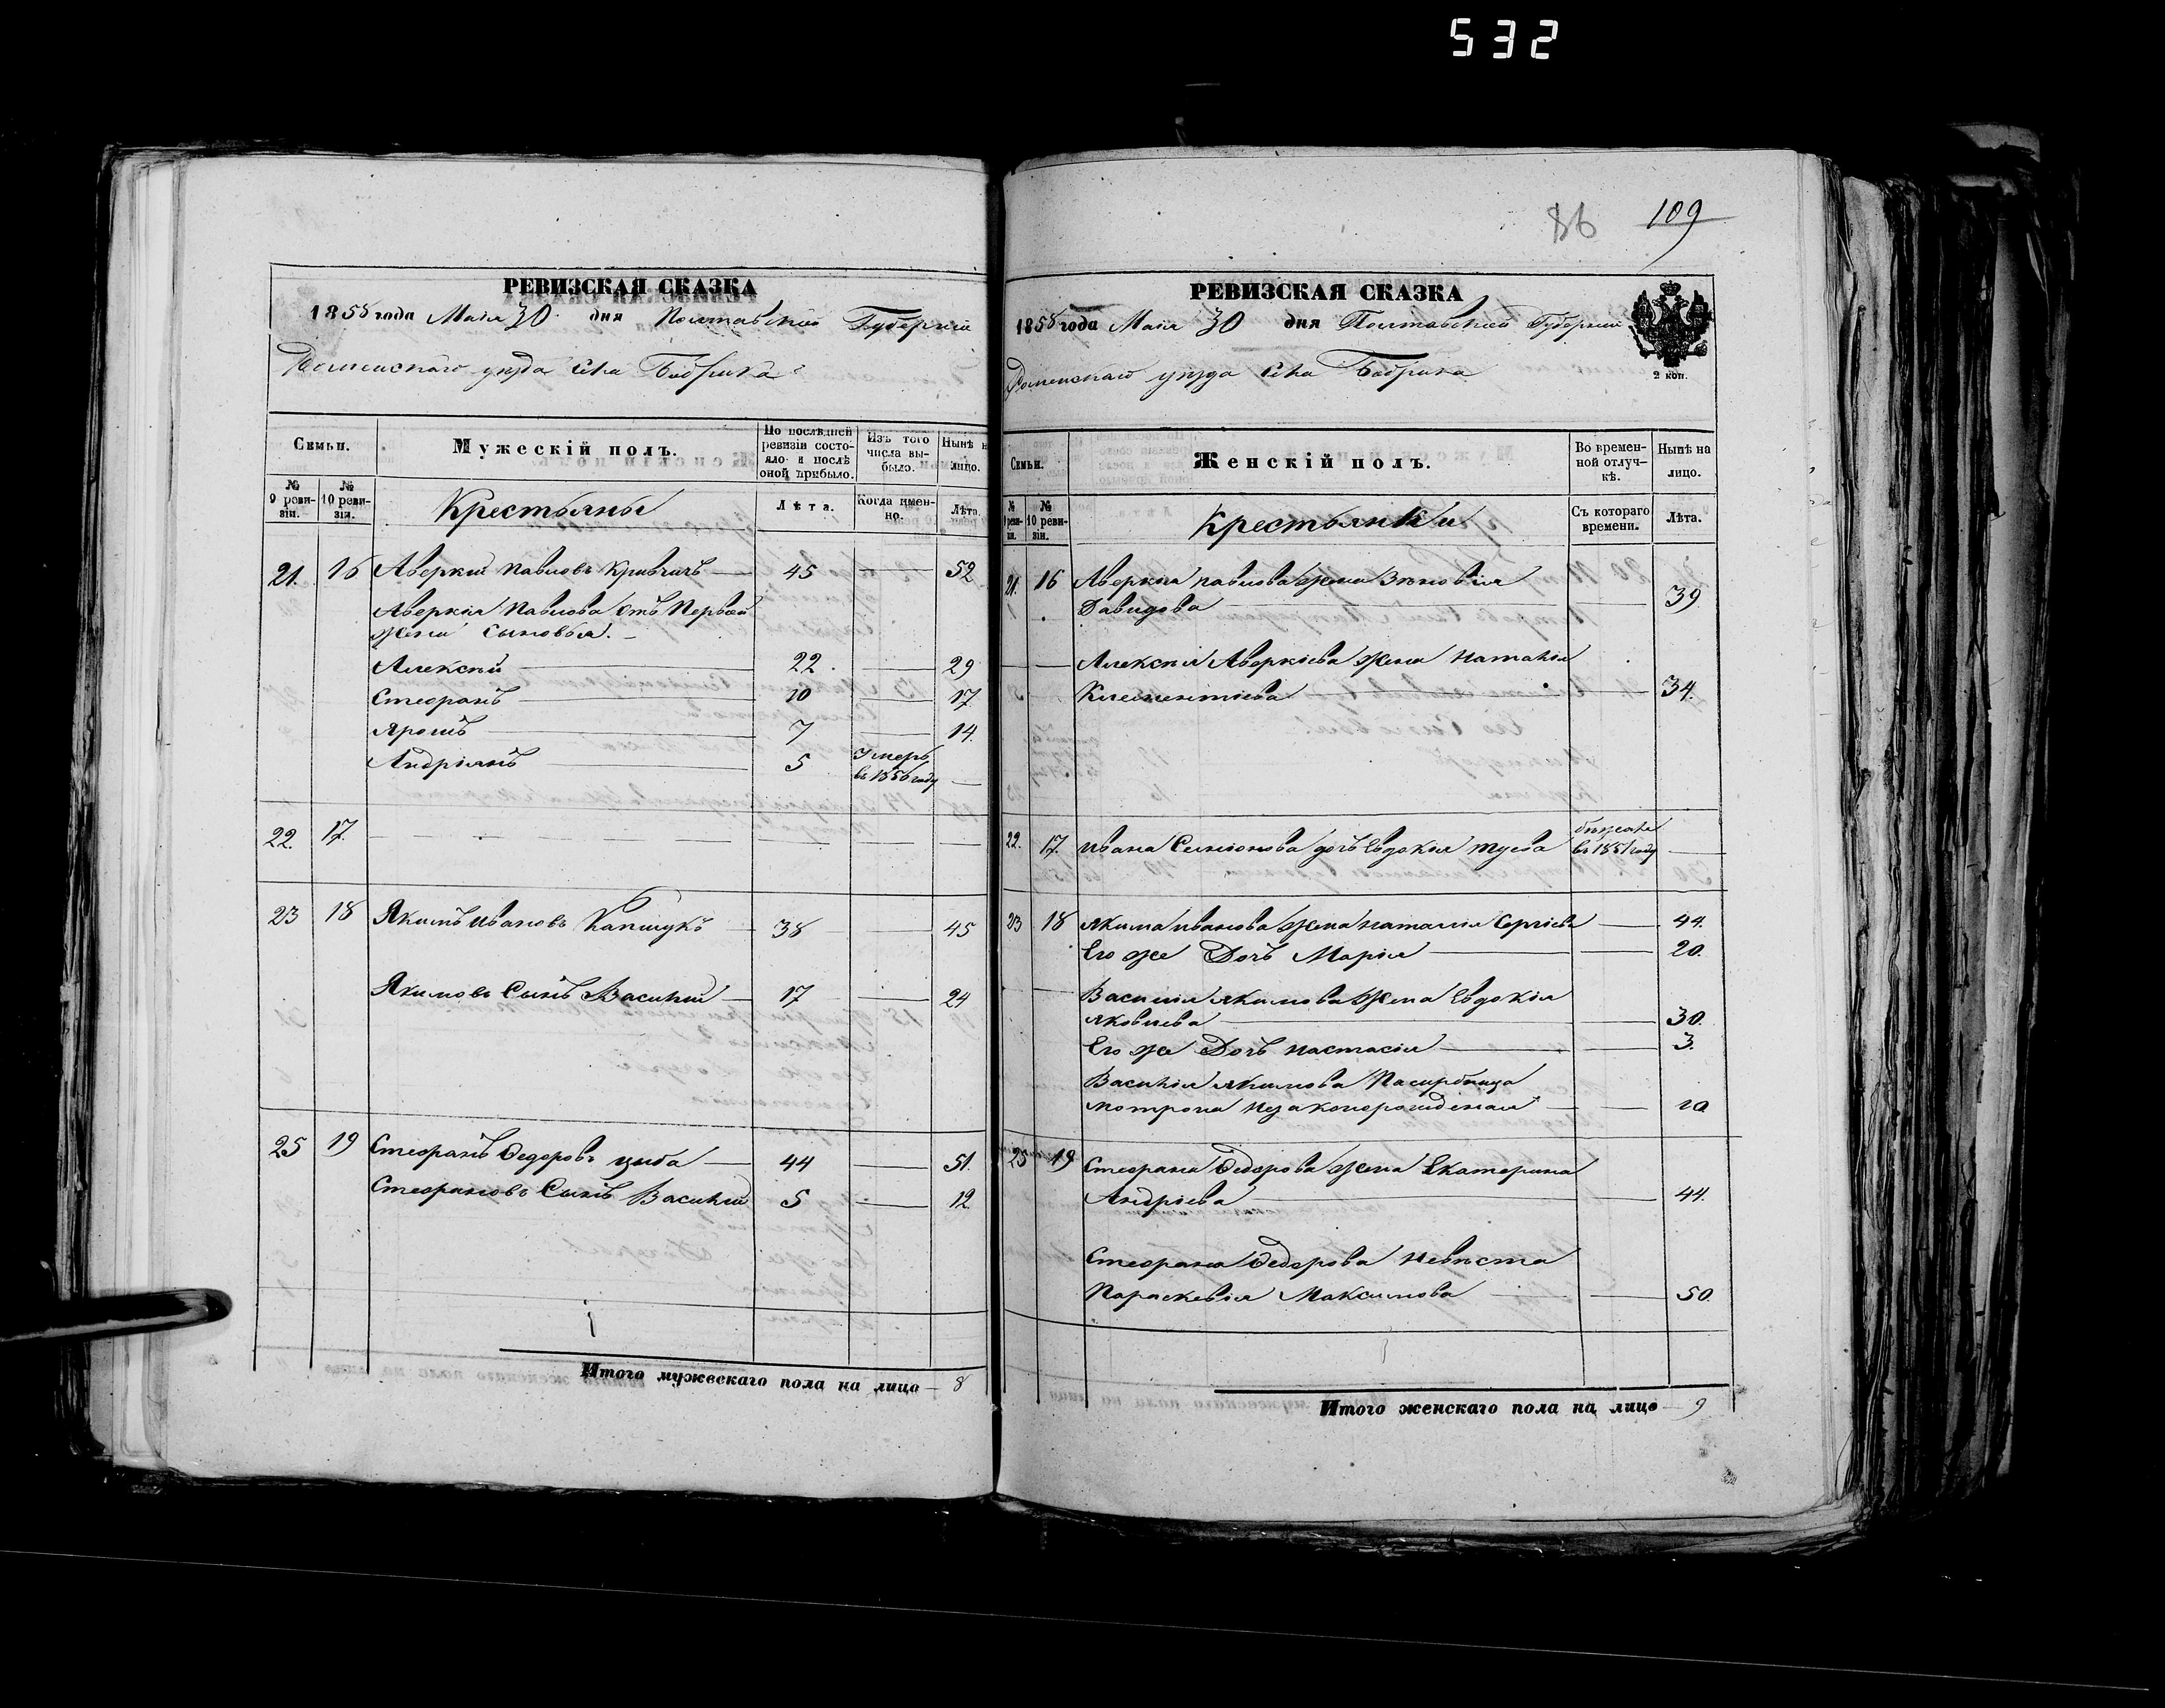 532
86 109
РЕВИЗСКАЯ СКАЗКА
1858 года Маия 30 дня Полтавской Губерніи
Роменскаго уезда Села Бобрика
Семьи.
Мужескій полъ.
По послѣдней ревизіи состояло и послѣ оной прибыло.
Изъ того числа выбыло.
Нынѣ на лицо.
№ 9 ревизіи.
№ 10 ревизіи.
Крестьяны
Лѣта.
Когда именно.
Лѣта.
21. 16 Аверкій Павловъ Кривчичъ 45 52
Аверкія Павлова отъ Первой
жены Сыновья.
Алексѣй 22. 29
Стефанъ 10 17
Ярошъ 7 14.
Андріянъ 5 Умеръ въ 1856 году
22. 17.
23 18 Якимъ Ивановъ Капшукъ 38 45
Якимовъ Сынъ Василій 17 24
25 19 Стефанъ Федоровъ Цыба 44 51.
Стефановъ Сынъ Василій 5 12
Итого мужескаго пола на лицо 8
РЕВИЗСКАЯ СКАЗКА
1858 года Маия 30 дня Полтавской Губерніи
Роменскаго уезда Села Бобрика
2 коп.
Семьи.
Женскій полъ.
Во временной отлучкѣ.
Нынѣ на лицо.
№ 9 ревизіи.
№ 10 ревизіи.
Крестьянки
Съ котораго времени.
Лѣта.
21. 16 Аверкія Павлова Жена Зѣновія
Давидова 39
Алексѣя Аверкіева Жена Наталія
Климентіева 34.
22. 17. Ивана Семіонова дочь Евдокія бѣжала въ 1851 году
23 18 Якима Иванова Жена Наталія Сергіева 44.
Его же Дочь Марія 20.
Василія Якимова Жена Евдокія
Яковлева 30.
Его же Дочь Настасія 3.
Василія Якимова Пасирбница
Мотрона Незаконорожденая 10
25 19 Стефана Федорова Жена Екатерина
Андріева 44.
Стефана Федорова Невѣста
Параскевія Максимова 50.
Итого женскаго пола на лицо 9